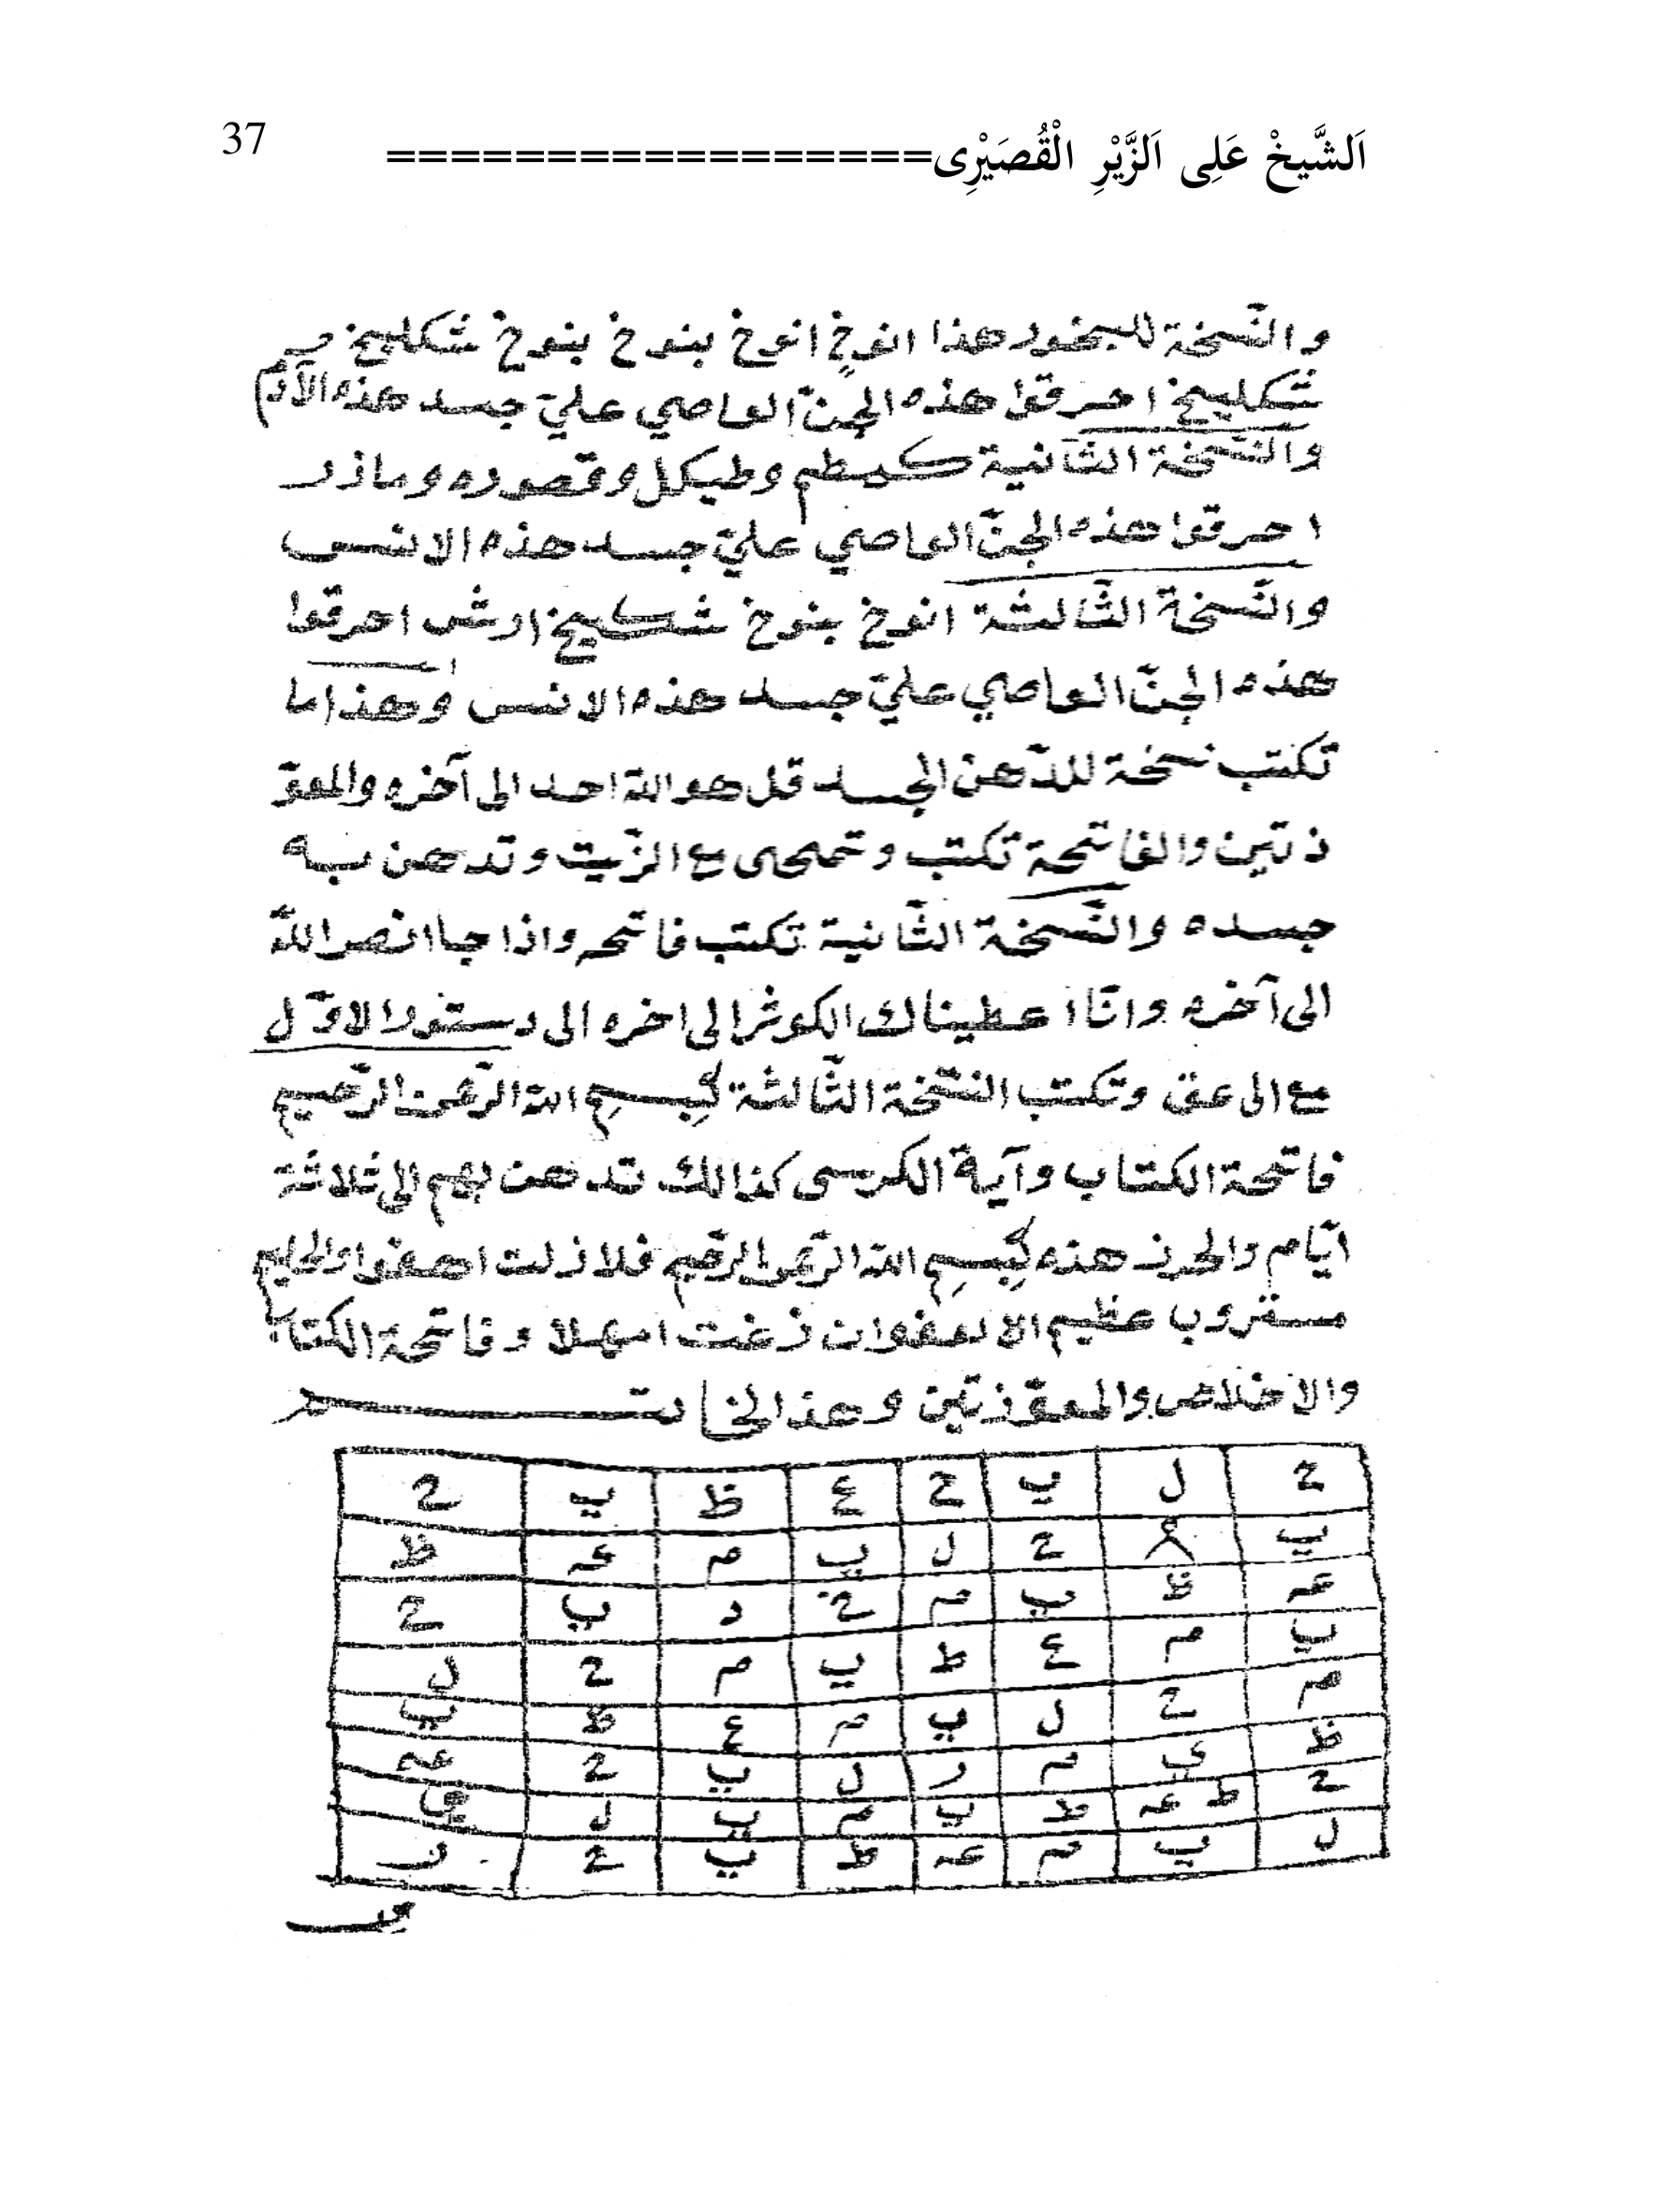 37
اَلشَّيخْ عَلِى اَلزَّيْرِ الْقُصَيْرِى=================
والنّسخة للبخور هذا انوخٍ انوخ بنوخ بنوخ شكليخ
شكليخ احرقوا هذه الجنّ العاصي عليّ جسد هذه الآدم
والنّسخة الثّانية كمطم وطيكل وقصوره وماذر
احرقوا هذه الجنّ العاصي عليّ جسد هذه الانس
والنّسخة الثّالثة انوخ بنوخ شكيخ ارش احرقوا
هذه الجنّ العاصي عليّ جسد هذه الانس وهذا ما
تكتب نسخة للدّهن الجسد قل هو اللّه احد الى آخره والمعوّ
ذتين والفاتحة تكتب وتمحى مع الزّيت وتدهن به
جسده والنّسخة الثّانية تكتب فاتحه واذا جاا نصر اللّه
الى آخره وانّا اعطيناك الكوثر الى اخره الى دستور الاوّل
مع الى عق وتكتب النتخة الثّالثة بِسمِ اللّه الرّحمن الرّحيم
فاتحة الكتاب وآية الكرسى كذالك تدهن بهم الى ثلاثة
ايّام والحرز هذه بِسمِ اللّه الرّحمن الرحيم فلا زلت
عظيم الا وفاتحة الكتاب
والاخلاص والمعوّذتين وهذ الخاتم
ح ل ي ح ع ظ ي ح
ي ح ل ي م عـ ظ
عـ ظ ي م ح د ي ح
ي م ع ط ي م ح ل
م ح ل ي م ع ط ي
ظ ي م ر ل ي ح عـ
ح ط عـ ط ي م ي ل
ل ي م عـ ط ي ح ر